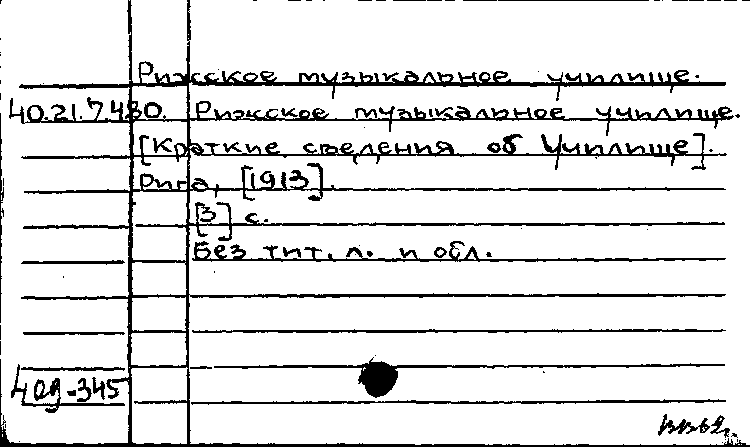 Рижское музыкальное училище.
40.21.7.480. Рижское музыкальное училище.
[Краткие сведения об Училище].
Рига, [1913].
[3] с.
Без тит. л. и обл.